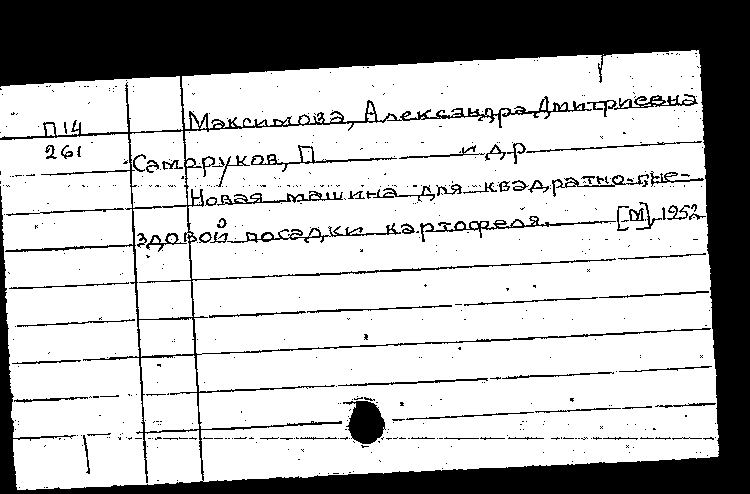 П14
261
Максимова, Александра Дмитриевна
Самаруков, П и др
Новая машина для квадратно-гне-
здовой посадки картофеля. [М], 1952